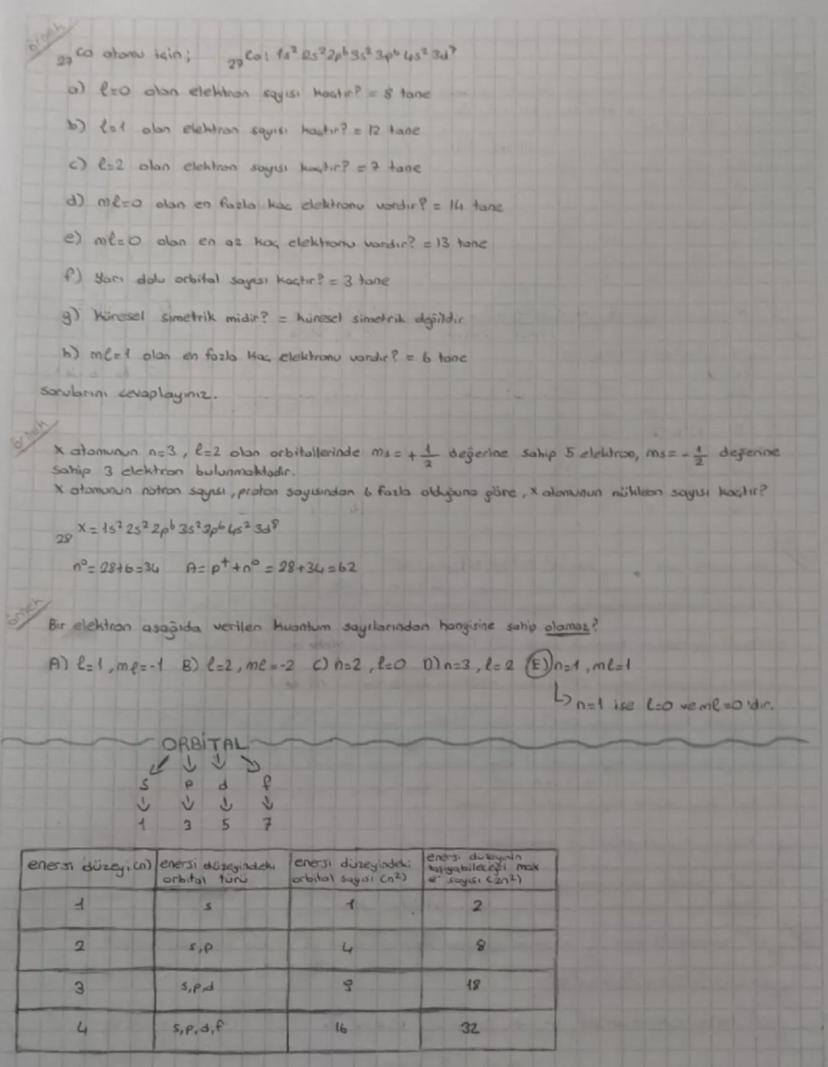 örnek
₂₇Co atomu için; ₂₇Co: 1s² 2s² 2p⁶ 3s² 3p⁶ 4s² 3d⁷
a) l=0 olan elektron sayısı kaçtır? = 8 tane
b) l=1 olan elektron sayısı kaçtır? = 12 tane
c) l=2 olan elektron sayısı kaçtır? = 7 tane
d) ml=0 olan en fazla kaç elektronu vardır? = 14 tane
e) ml=0 olan en az kaç elektronu vardır? = 13 tane
f) Yarı dolu orbital sayısı kaçtır? = 3 tane
g) Küresel simetrik midir? = küresel simetrik değildir
h) ml=1 olan en fazla kaç elektronu vardır? = 6 tane
sorularını cevaplayınız.
örnek
X atomunun n=3, l=2 olan orbitallerinde ms=+1/2 değerine sahip 5 elektron, ms=-1/2 değerine
sahip 3 elektron bulunmaktadır.
X atomunun nötron sayısı, proton sayısından 6 fazla olduğuna göre, X atomunun nükleon sayısı kaçtır?
₂₈X = 1s² 2s² 2p⁶ 3s² 3p⁶ 4s² 3d⁸
n⁰ = 28+6=34 A= p⁺ + n⁰ = 28+34=62
örnek
Bir elektron aşağıda verilen kuantum sayılarından hangisine sahip olamaz?
A) l=1, ml=-1 B) l=2, ml=-2 C) n=2, l=0 D) n=3, l=2 E) n=1, ml=1
↳ n=1 ise l=0 ve ml=0'dır.
ORBİTAL
↙ ↓ ↓ ↘
s p d f
↓ ↓ ↓ ↓
1 3 5 7
enerji düzeyi (n) enerji düzeyindeki orbital türü enerji düzeyindeki orbital sayısı (n²) enerji düzeyinin taşıyabileceği mak e⁻ sayısı (2n²)
1 s 1 2
2 s,p 4 8
3 s,p,d 9 18
4 s,p,d,f 16 32